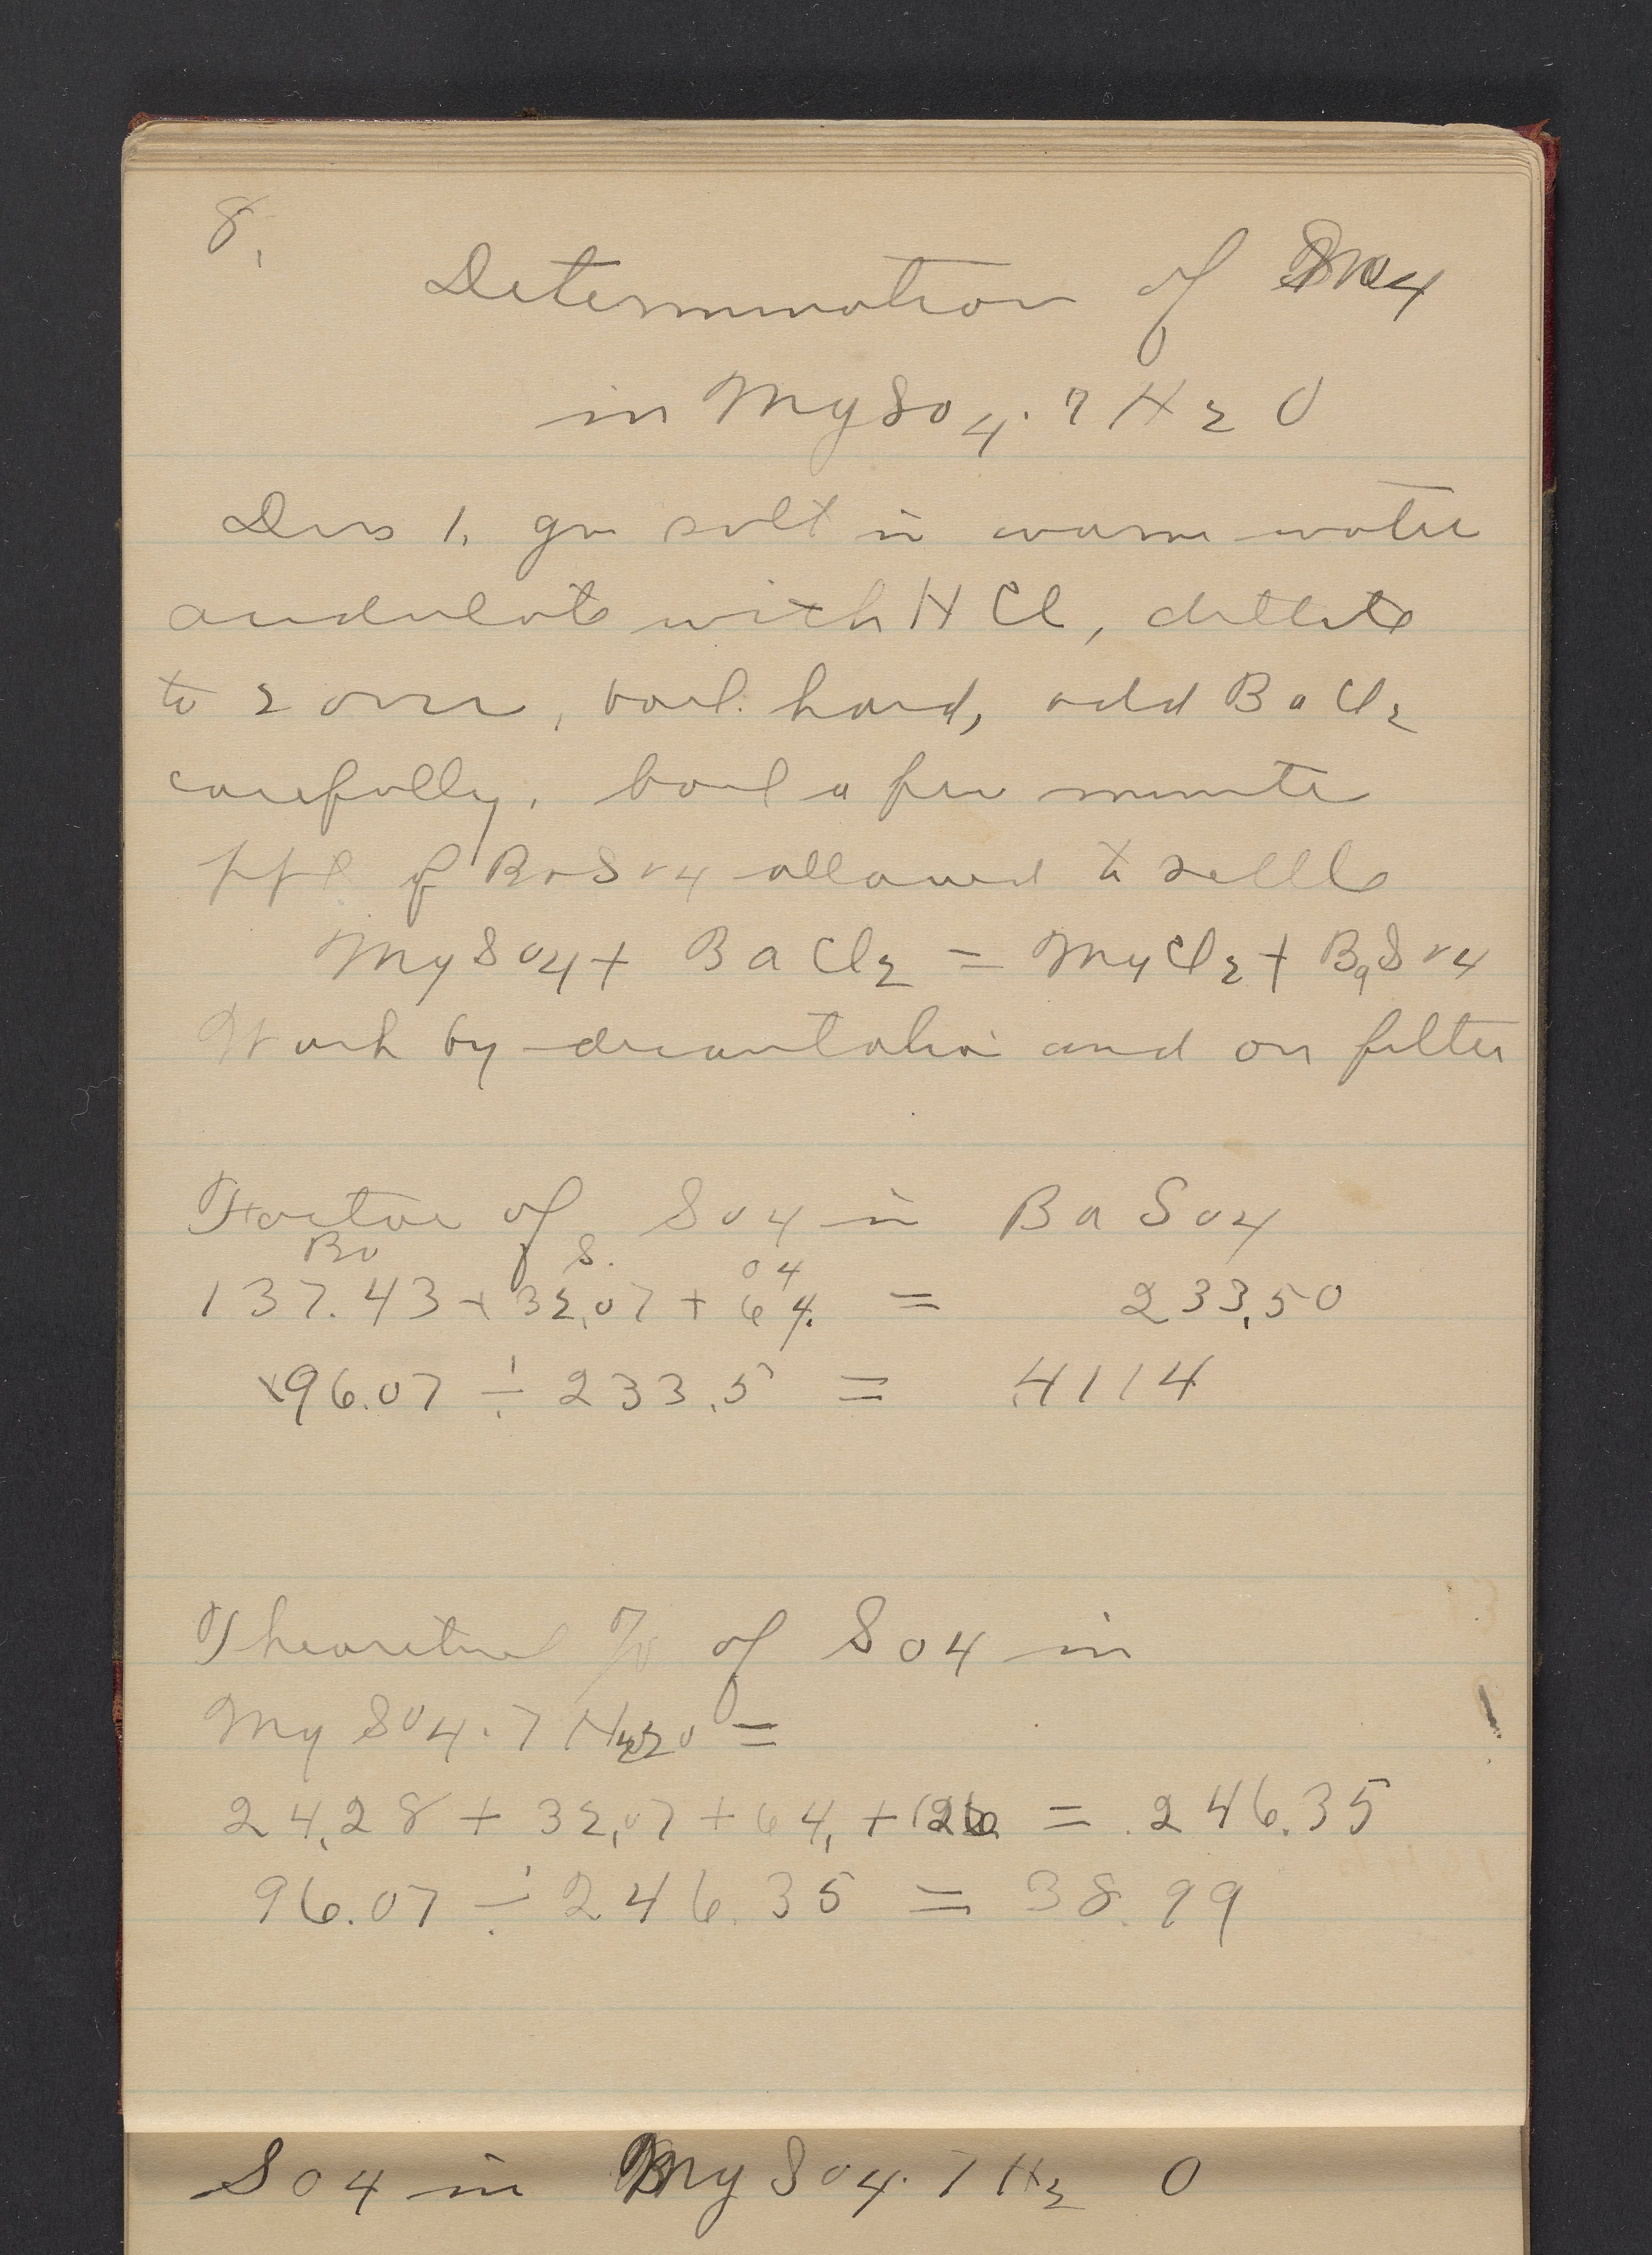 8.
Determination of SO4
in MgSO4. 7 H2 O
Diss 1. gm salt in warm water
acidulate with HCl, dillute
to 200cc, boil hard, add BaCl2
carefully. boil a few minute
ppt of BaSO4 allowed to settle
MgSO4 + BaCl2 = MgCl2 + BaSO4
Wash by decantation and on filter
Factor of SO4 in BaSO4
Ba S. O4
137.43 + 32.07 + 64. = 233.50
96.07 ÷ 233.5 = .4114
Theoretical % of SO4 in
MgSO4. 7 H2O =
24.28 + 32.07 + 64. + 126. = 246.35
96.07 ÷ 246.35 = 38.99
SO4 in MgSO4. 7 H2 O